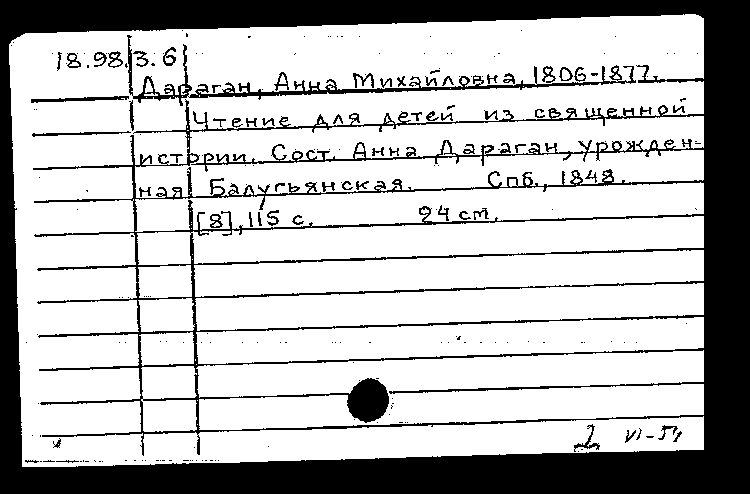 18.98.3.6
Дараган, Анна Михайловна, 1806-1877.
Чтение для детей из священной
истории. Сост. Анна Дараган, урожден-
ная Балугьянская. Спб., 1848.
[8], 115 с. 24 см.
2 VI-54